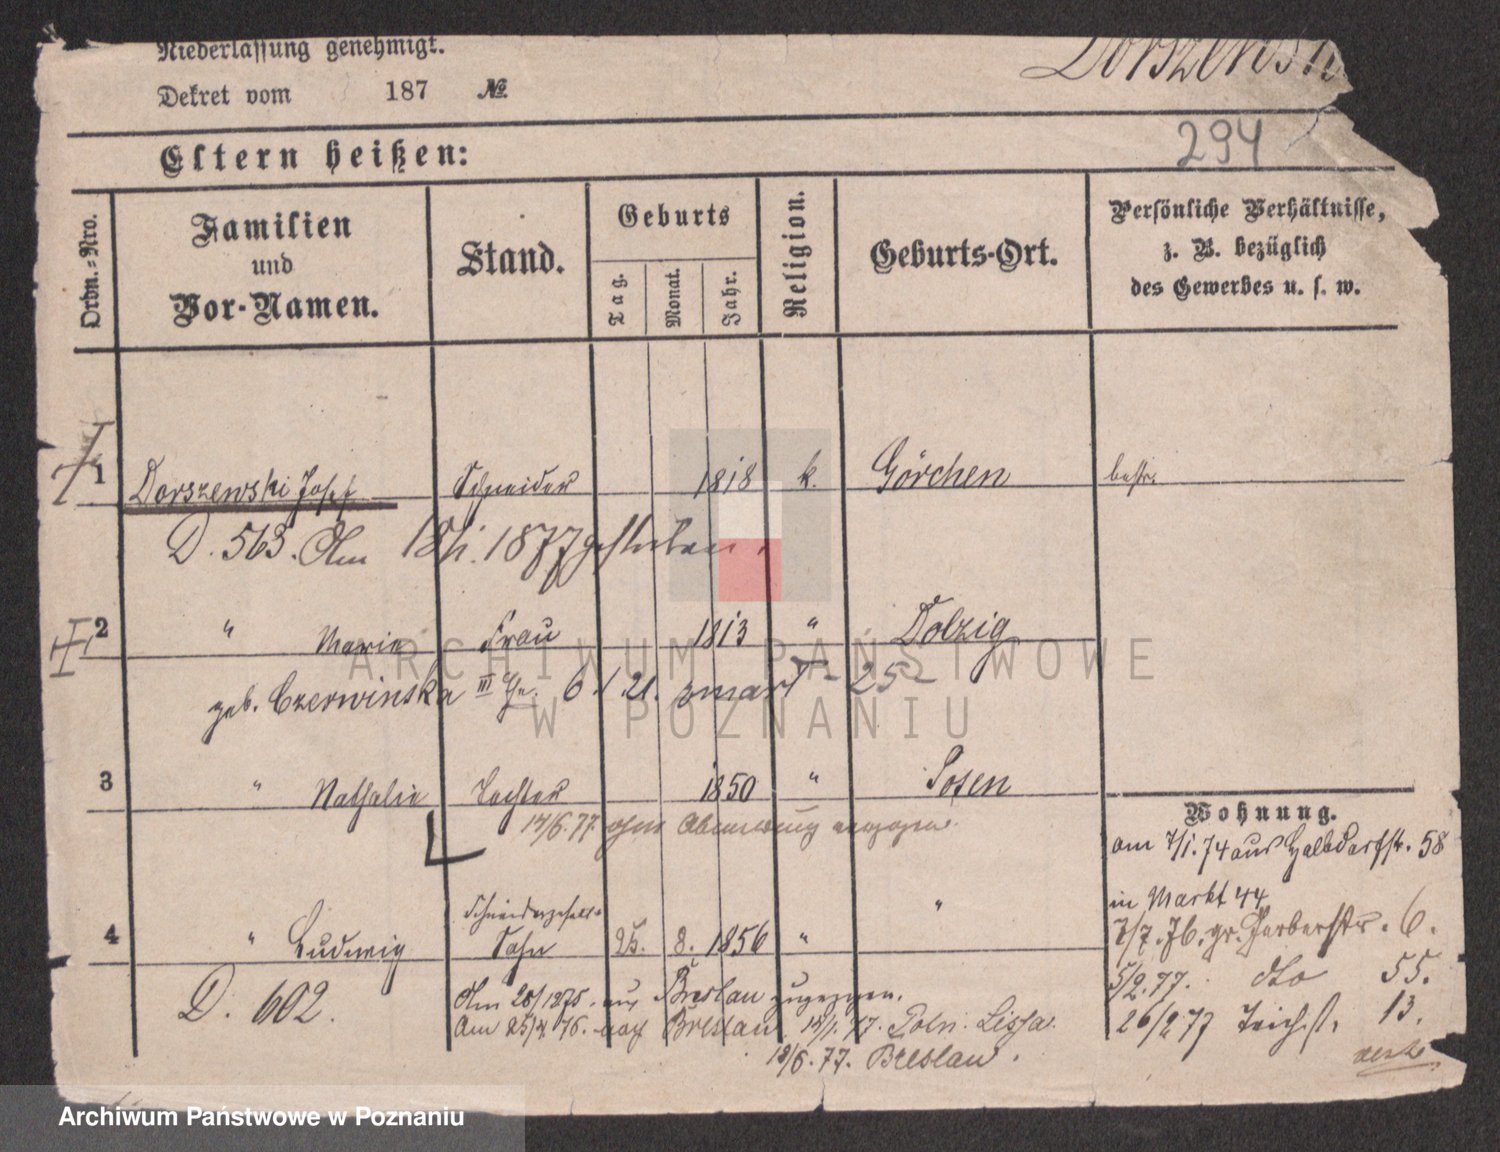 Niederlassung genehmigt.
Dekret vom 187 No.
Dorszewsk
294
Eltern heißen:
Ordn.-Nro.
Familien
und
Vor-Namen.
Stand.
Geburts
Tag.
Monat.
Jahr.
Religion.
Geburts-Ort.
Persönliche Verhältnisse,
z. B. bezüglich
des Gewerbes u. s. w.
1 Dorszewski Josef Schneider 1818 k. Görchen
D. 563. Am 18/1. 1877 gestorben.
2 " Marie Frau 1813 " Dolzig
geb. Czerwinska
3 " Nathalie Tochter 1850 " Posen
14/6. 77. ohne Abmeldung
4 " Ludwig Schneidergesell- Sohn 25. 8. 1856 " "
D. 602.
aus Breslau zugezogen.
Am 25/4 76. nach Breslau. 14/1. 77. Poln. Lissa.
18/6. 77. Breslau.
Wohnung.
am 7/1. 74 aus Halbdorfstr. 58
in Markt 44
7/7. 76. gr. Gerberstr. 6.
5/2. 77. dto 55.
26/2 77 Teichst. 13.
ARCHIWUM PAŃSTWOWE
W POZNANIU
Archiwum Państwowe w Poznaniu